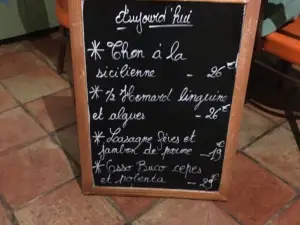 Aujourd'hui
* Thon à la
sicilienne - 26€
* ½ Homard linguine
et algues - 26€
* Lasagne fèves et
jambon de parme - 19€
* Osso Buco cepes
et polenta - 29€